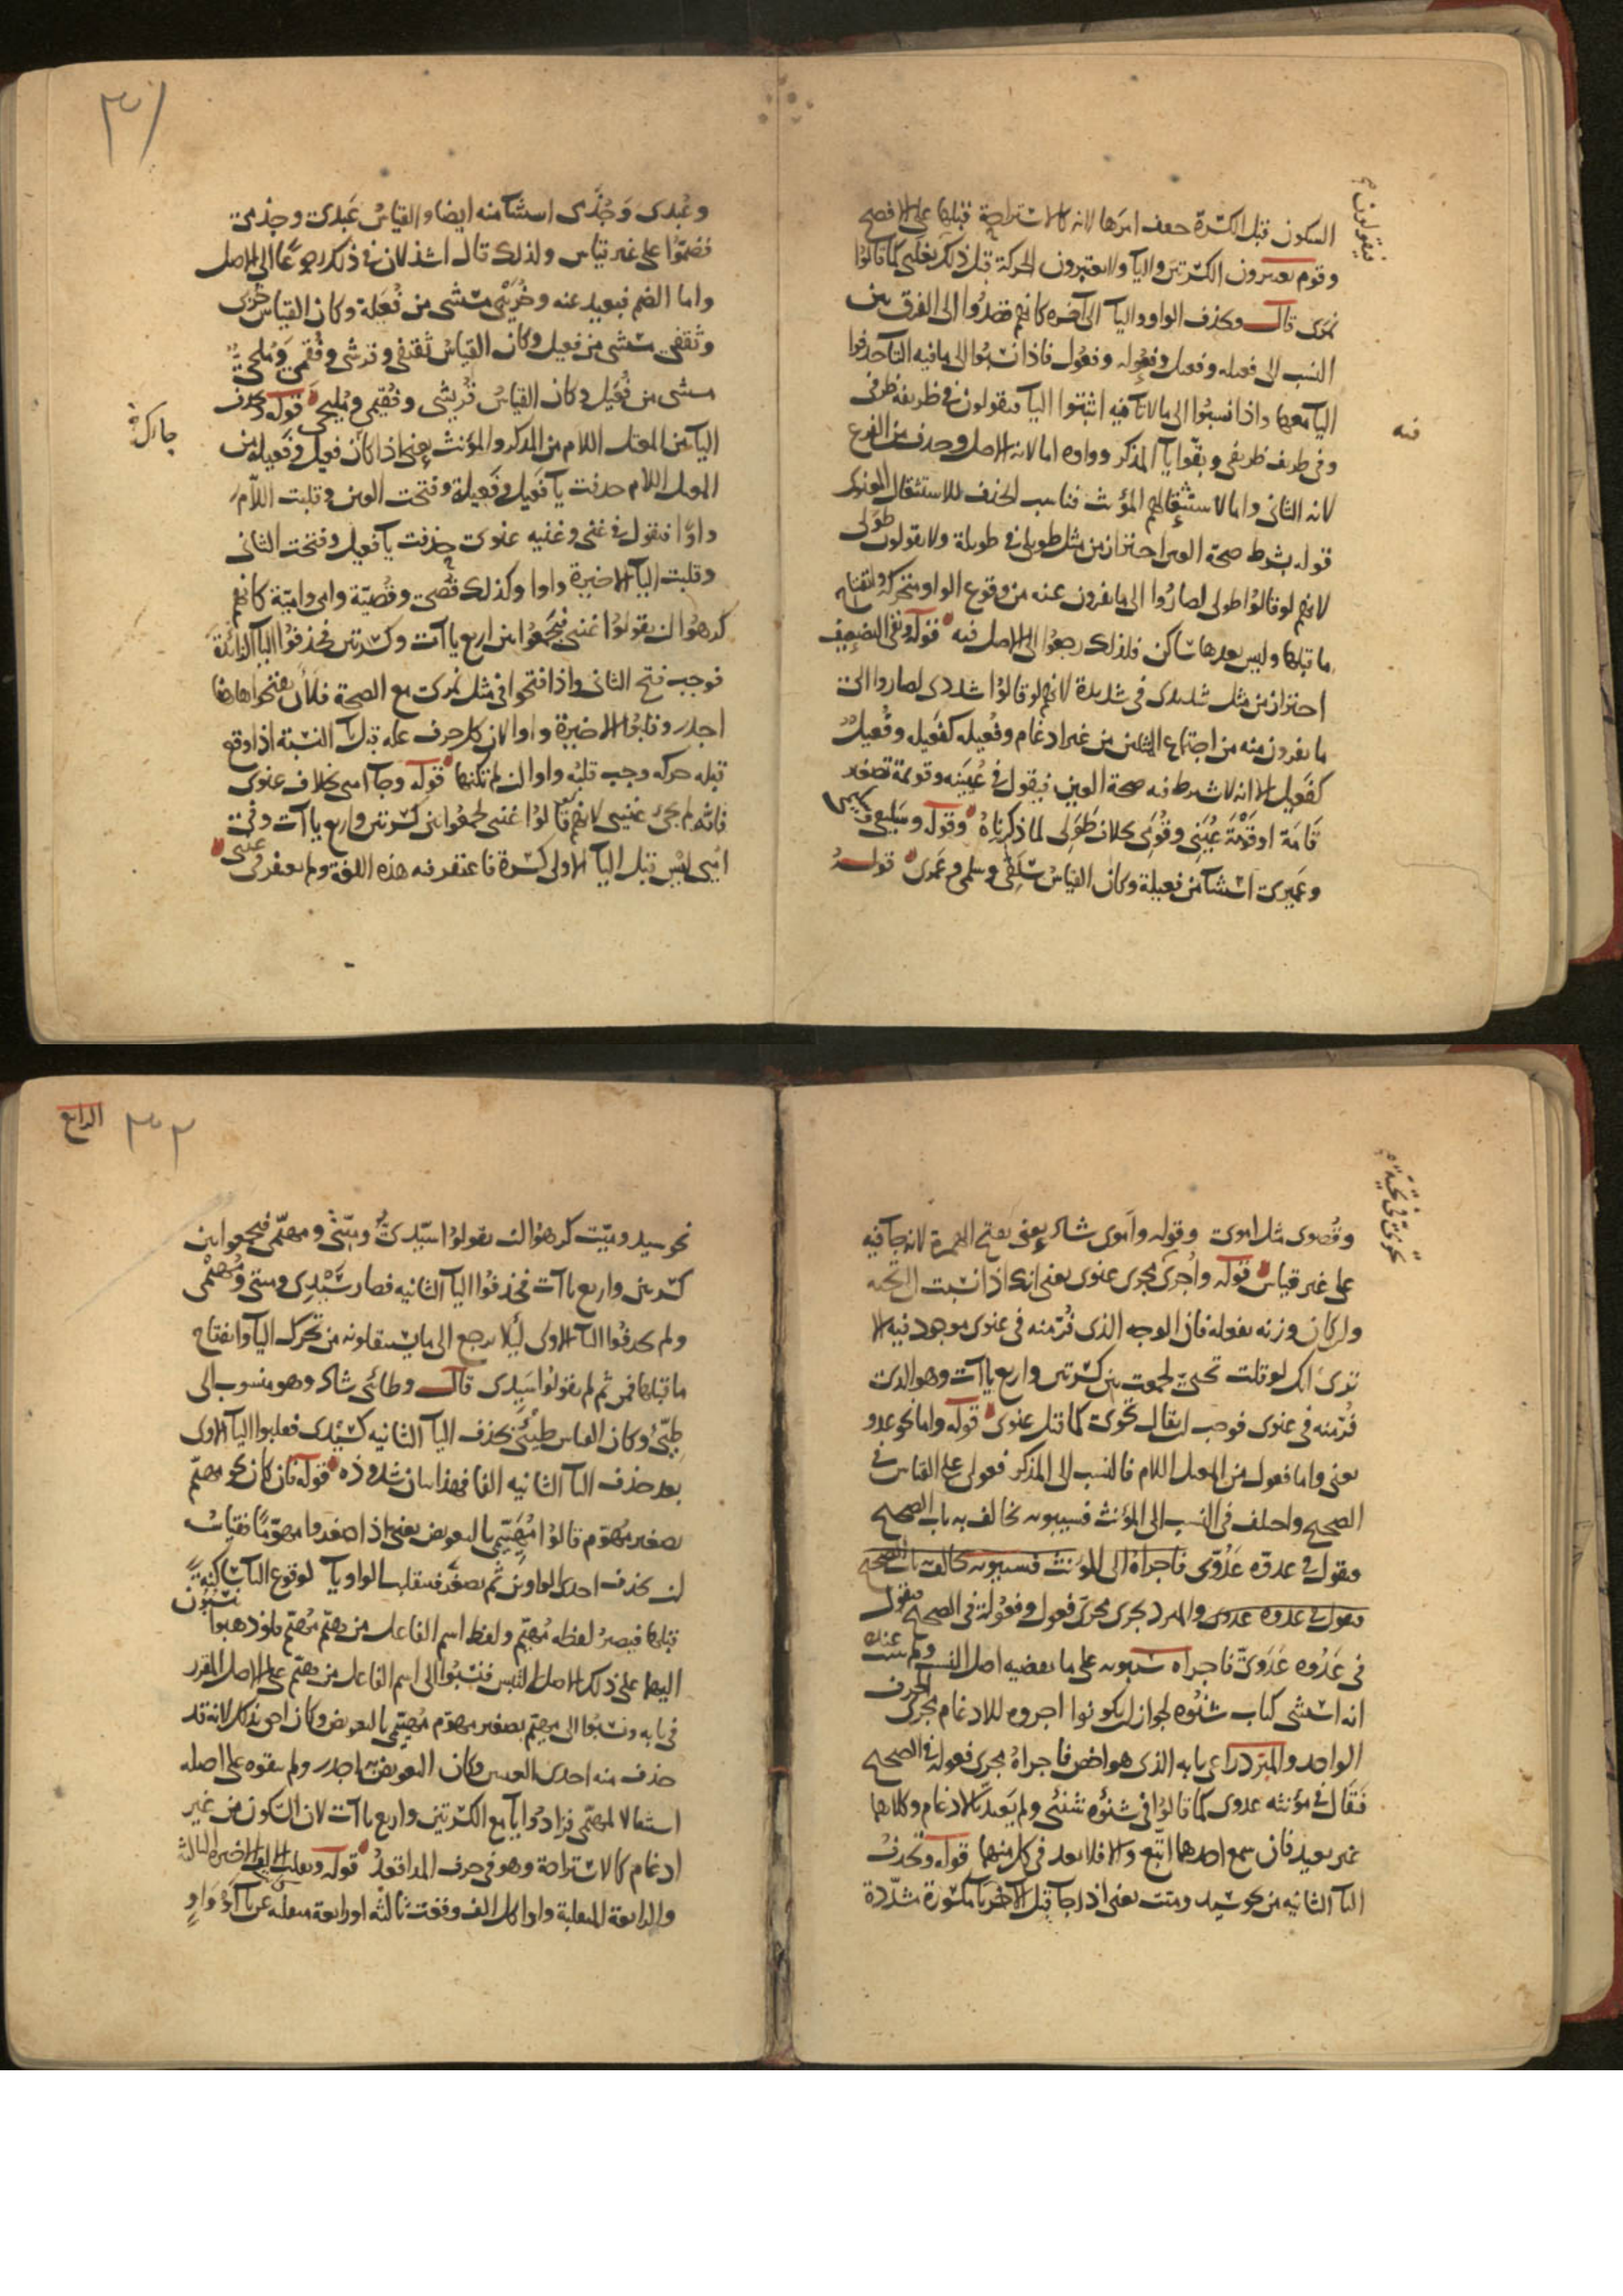 السكون قبل الكسرة ضعف امرها لانه كالاستراحة قبلها على الافصح
فيقولون
وقوم يعتبرون الكسرتين واليآ ولا يعتبرون الحركة قبل ذلك تغلبى كما قالوا
نمرى قال وتحذف الواو واليآ الى آخره كانهم قصدوا الى الفرق بين
النسب الى فعيله وفعيل وفعوله وفعول فاذا نسبوا الى ما فيه التآ حذفوا
اليآ معها واذا نسبوا الى ما لا تآ فيه اثبتوا اليآ فيقولون فى ظريفه ظرفى
فيه
وفى ظريف ظريفى وبقوا يآ المذكر وواوه اما لانه الاصل وحذف من الفرع
لانه الثانى واما لاستثقالهم المؤنث فناسب الحذف للاستثقال المذكور
قوله بشرط صحة العين احتراز من مثل طويلى فى طويلة ولا يقولون طولى
لانهم لو قالوا طولى لصاروا الى ما يفرون عنه من وقوع الواو متحركة وانفتاح
ما قبلها وليس بعدها ساكن فلذلك رجعوا الى الاصل فيه قوله ونفى التضعيف
احتراز من مثل شديدى فى شديدة لانهم لو قالوا شددى لصاروا الى
ما يفرون منه من اجتماع المثلين من غير ادغام وفعيله كفعيله وفعيل
كفعيل الا انه لا يشترط فيه صحة العين فيقول فى عيينه وقويمة تصغير
قامة او قومة عيينى وقومى بخلاف طولى لما ذكرناه وقوله وسليقى وسليمى
وعميرى استثنآ من فعيلة وكان القياس سلقى وسلمى وعمرى قوله
وعبدى وجذمى استثنآ منه ايضا والقياس عبدى وجذمى
فضموا على غير قياس ولذلك قال اشذ لان فى ذلك رجوعا الى الاصل
واما الضم فبعيد عنه وخريبى مستثنى من فعيلة وكان القياس خربى
وثقفى مستثنى من فعيل وكان القياس ثقيفى وقرشى وفقمى وملحى
مستثنى من فعيل وكان القياس قريشى وفقيمى ومليحى قوله وتحذف
اليآ من المعتل اللام من المذكر والمؤنث يعنى اذا كان فعيل وفعيله من
المعتل اللام حذفت يآ فعيل وفعيلة وفتحت العين وقلبت اللام
واوا فيقول فى غنى وغنيه غنوى حذفت يآ فعيل وفتحت الثانى
وقلبت اليآ الاخيرة واوا وكذلك قصى وقصيّة وامى واميّة كانهم
كرهوا ان يقولوا غنيى فيجمعوا بين اربع ياآت وكسرتين فحذفوا اليآ الزائدة
فوجب فتح الثانى واذا فتحوا فى مثل نمرى مع الصحة فلأن يفتحوا هاهنا
اجدر وقلبوا الاخيرة واوا لان كل حرف علة قبل يآ النسبة اذا وقع
قبله حركه وجب قلبه واوا ان لم تكنها قوله وجآ اميى بخلاف غنوى
فانه لم يجئ غنيى لانهم لو قالوا غنيى لجمعوا بين كسرتين واربع ياآت وفى
اميى ليس قبل اليآ الاولى كسرة فاغتفر فيه هذه اللغة ولم يغتفر فى غنى
الرابع
وقصوى مثل اموى وقوله واموى شاذ يعنى بفتح الهمزة لانه جآ فيه
على غير قياس قوله واجرى تحوى مجرى غنوى يعنى انك اذا نسبت الى تحيه
وان كان وزنه تفعله فان الوجه الذى فُرّ منه فى غنوى موجود فيه الا
ترى انك لو قلت تحيى لجمعت بين كسرتين واربع ياآت وهو الذى
فُرّ منه فى غنوى فوجب ان يقال تحوى كما قيل غنوى قوله واما نحو عدو
يعنى واما فعول من المعتل اللام فالنسب الى المذكر فعولى على القياس فى
الصحيح واختلف فى النسب الى المؤنث فسيبويه يخالف به باب الصحيح
فيقول فى عدوّه عدوّى فاجراه الى المؤنث فسيبويه يخالف باب الصحيح
فيقول فى عدوه عدوى والمبرد يجرى مجرى فعول وفعولة فى الصحيح فيقول
فى عدوه عدوىّ فاجراه سيبويه على ما يقتضيه اصل النسب ولم يثبت عنده
انه استثنى كباب شنوه لجواز ان يكونوا اجروه للادغام مجرى الحرف
الواحد والمبرد راعى بابه الذى هو اخص فاجراه مجرى فعوله فى الصحيح
فقال فى مؤنثه عدوى كما قالوا فى شنوه شنئى ولم يعتد بالادغام وكلاهما
غير بعيد فان سمع احدهما اتبع والا فلا بعد فى كل منهما قوله وتحذف
اليآ الثانيه من نحو سيد وميت يعنى اذا جآ قبل الآخر يآ مكسورة مشدّدة
نحو سيد وميّت كرهوا ان يقولوا سيّدىّ وميّتى ومهيّمى فيجمعوا بين
كسرتين واربع ياآت فحذفوا اليآ الثانيه فصار سيْدى وميتى ومهيمى
ولم يحذفوا اليآ الاولى ليلا يرجع الى ما يستثقلونه من تحرك اليآ وانفتاح
ما قبلها فمن ثم لم يقولوا سيدى قال وطائى شاذ وهو منسوب الى
طيّئ وكان القياس طيئى بحذف اليآ الثانيه كسيدى فقلبوا اليآ الاولى
بعد حذف اليآ الثانيه الفا فهذا بيان شذوذه قوله فان كان نحو مهيّم
تصغير مهوّم قالوا مهيّيمى بالتعويض يعنى اذا صغروا مهوّما فقياسه
ان يحذف احدى الواوين ثم يصغّر فتقلب الواو يآ لوقوع اليآ ساكنة
قبلها فيصير لفظه مهيّم ولفظ اسم الفاعل من هيّم مهيّم فلو ذهبوا ينسبون
اليهما على ذلك الاصل التبس فنسبوا الى اسم الفاعل من هيّم على الاصل المقرر
فى بابه ونسبوا الى مهيّم تصغير مهوّم مهيّيمى بالتعويض وكان احق بذلك لانه قد
حذف منه احدى العينين وكان التعويض به اجدر ولم يبقوه على اصله
استثقالا لمهيّمى فزادوا يآ مع الكسرتين واربع ياآت لان السكون من غير
ادغام كالاستراحة وهو فى حرف المد اقعد قوله وتقلب الالف الاخيرة الثالثة
والرابعة المنقلبة واوا كل الف وقعت ثالثة او رابعة منقلبة عن يآ او واو